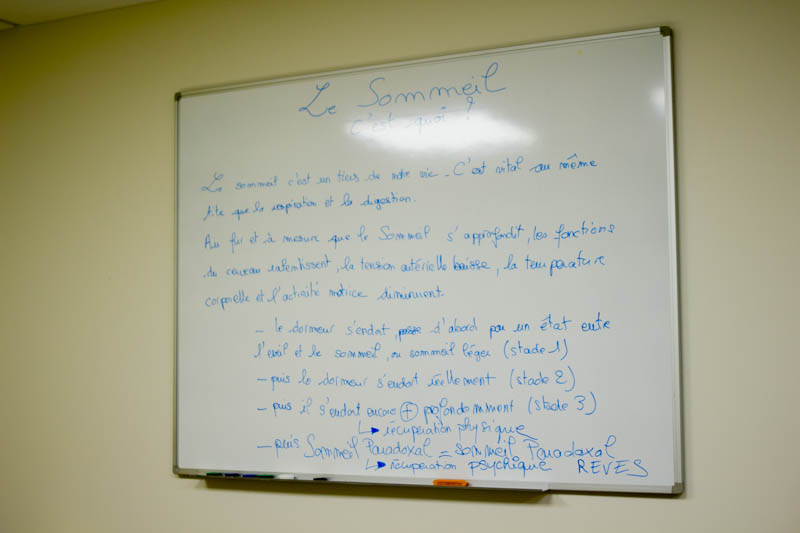 Le Sommeil
c'est quoi ?
Le sommeil c'est un tiers de notre vie. C'est vital au même
titre que la respiration et la digestion.
Au fur et à mesure que le Sommeil s'approfondit, les fonctions
du cerveau ralentissent, la tension artérielle baisse, la température
corporelle et l'activité motrice diminuent.
- le dormeur s'endort, passe d'abord par un état entre
l'éveil et le sommeil, ou sommeil léger (stade 1)
- puis le dormeur s'endort réellement (stade 2)
- puis il s'endort encore + profondemment (stade 3)
↳ récupération physique
- puis Sommeil Paradoxal = sommeil Paradoxal
↳ récupération psychique REVES